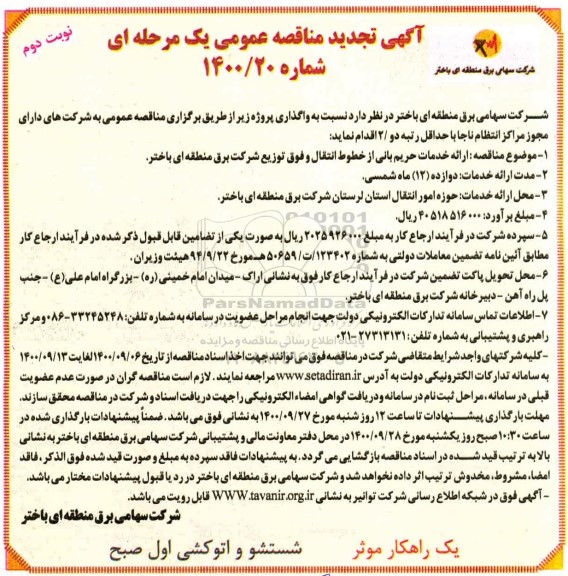 نوبت دوم
آگهی تجدید مناقصه عمومی یک مرحله ای
شماره ۱۴۰۰/۲۰
شرکت سهامی برق منطقه ای باختر
شــرکت سهامی برق منطقه ای باختر در نظر دارد نسبت به واگذاری پروژه زیر از طریق برگزاری مناقصه عمومی به شرکت های دارای
مجوز مراکز انتظام ناجا با حداقل رتبه دو /۲ اقدام نماید:
۱-موضوع مناقصه : ارائه خدمات حریم بانی از خطوط انتقال و فوق توزیع شرکت برق منطقه ای باختر.
۲-مدت ارائه خدمات: دوازده (۱۲) ماه شمسی.
۳-محل ارائه خدمات: حوزه امور انتقال استان لرستان شرکت برق منطقه ای باختر.
۴-مبلغ برآورد: ۴۰۵۱۸۵۱۶۰۰۰ ریال.
۵-سپرده شرکت در فرآیند ارجاع کار به مبلغ ۲۰۲۵۹۲۶۰۰۰ ریال به صورت یکی از تضامین قابل قبول ذکر شده در فرآیند ارجاع کار
مطابق آئین نامه تضمین معاملات دولتی به شماره ۱۲۳۴۰۲/ت/۵۰۶۵۹ هـ مورخ ۹۴/۹/۲۲ هیئت وزیران .
۶-محل تحویل پاکت تضمین شرکت در فرآیند ارجاع کار فوق به نشانی اراک - میدان امام خمینی (ره) -بزرگراه امام علی(ع) - جنب
پل راه آهن - دبیرخانه شرکت برق منطقه ای باختر.
۷-اطلاعات تماس سامانه تدارکات الکترونیکی دولت جهت انجام مراحل عضویت در سامانه به شماره تلفن: ۳۳۲۴۵۲۴۸-۰۸۶ و مرکز
راهبری و پشتیبانی به شماره تلفن : ۲۷۳۱۳۱۳۱-۰۲۱
-کلیه شرکتهای واجد شرایط متقاضی شرکت در مناقصه فوق می توانند جهت اخذ اسناد مناقصه از تاریخ ۱۴۰۰/۰۹/۰۶ لغایت ۱۴۰۰/۰۹/۱۳
به سامانه تدارکات الکترونیکی دولت به آدرس www.setadiran.ir مراجعه نمایند . لازم است مناقصه گران در صورت عدم عضویت
قبلی در سامانه ، مراحل ثبت نام در سامانه و دریافت گواهی امضاء الکترونیکی را جهت دریافت اسناد و شرکت در مناقصه محقق سازند.
مهلت بارگذاری پیشــنهادات تا ساعت ۱۲ روز شنبه مورخ ۱۴۰۰/۰۹/۲۷ به نشانی فوق می باشد . ضمناً پیشنهادات بارگذاری شده در
ساعت ۱۰:۳۰ صبح روز یکشنبه مورخ ۱۴۰۰/۰۹/۲۸ در محل دفتر معاونت مالی و پشتیبانی شرکت سهامی برق منطقه ای باختر به نشانی
بالا به ترتیب قید شــده در اسناد مناقصه بازگشایی می گردد . به پیشنهادات فاقد سپرده به مبلغ و صورت قید شده فوق الذکر ، فاقد
امضا، مشروط، مخدوش ترتیب اثر داده نخواهد شد و شرکت سهامی برق منطقه ای باختر در رد یا قبول پیشنهادات مختار می باشد.
-آگهی فوق در شبکه اطلاع رسانی شرکت توانیر به نشانی WWW.tavanir.org.ir قابل رویت می باشد.
شرکت سهامی برق منطقه ای باختر
ParsNamadData
پایگاه اطلاع رسانی مناقصه و مزایده
یک راهکار موثر
شستشو و اتوکشی اول صبح